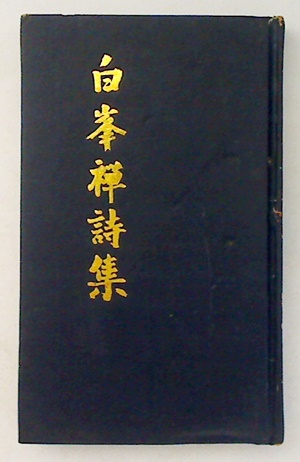 白峯禪詩集